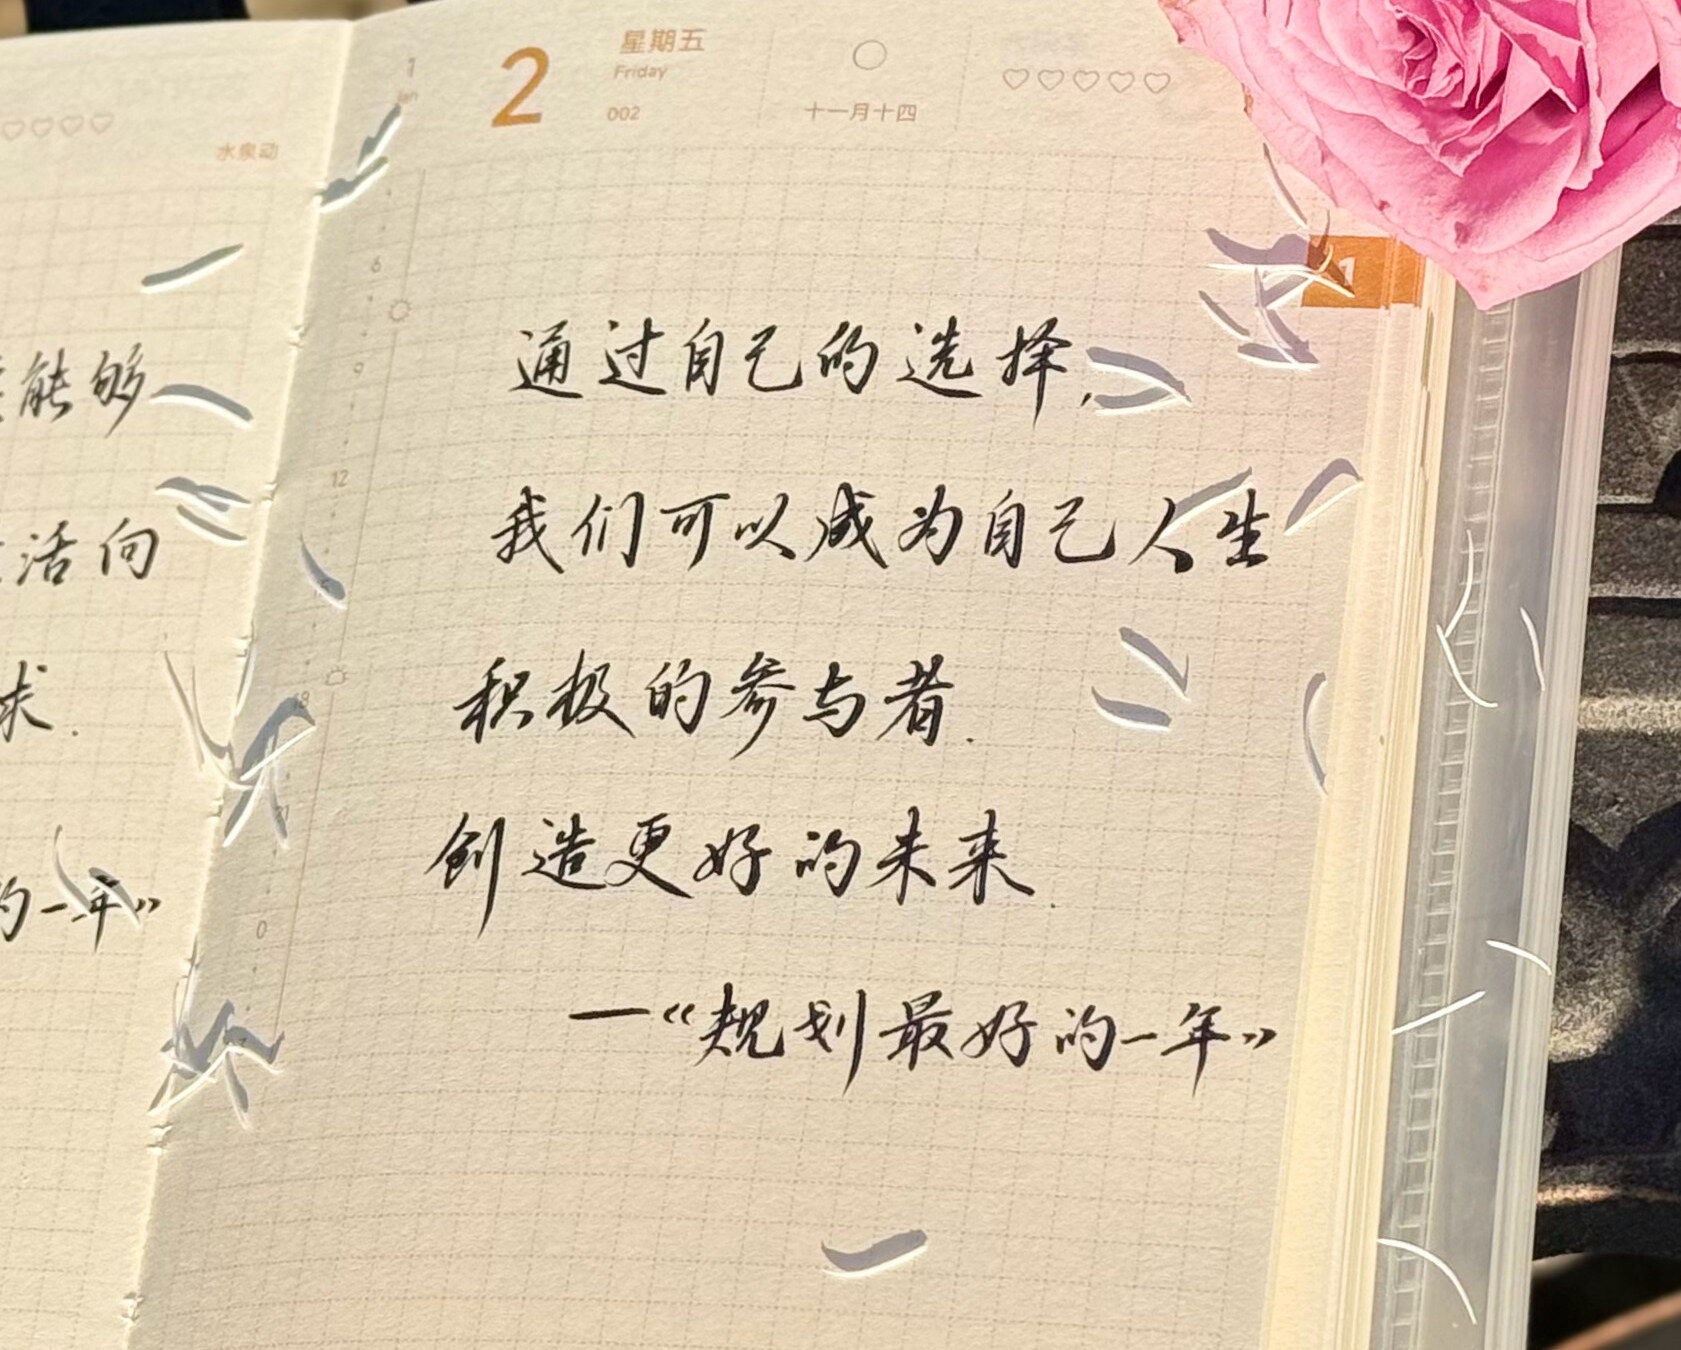 水泉动
能够
活向
求.
的一年》
1
Jan
2
星期五
Friday
002
十一月十四
1
6
9
12
通过自己的选择,
我们可以成为自己人生
积极的参与者.
创造更好的未来.
—《规划最好的一年》
0